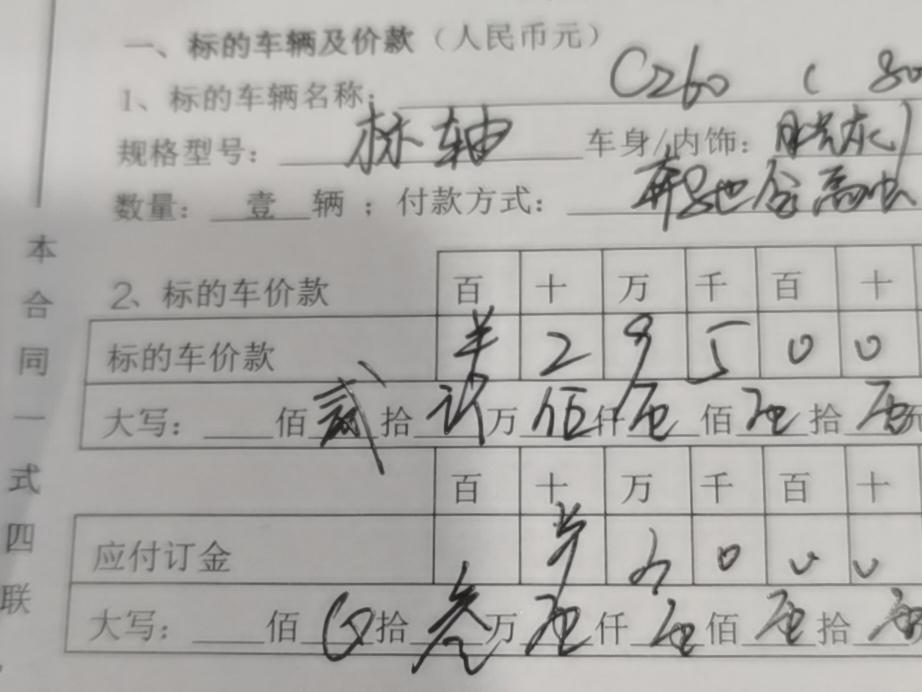 一、标的车辆及价款（人民币元）
1、标的车辆名称： C260 (
规格型号： 标轴 车身/内饰：
数量： 壹 辆 ；付款方式： 奔驰金
2、标的车价款 百 十 万 千 百 十
标的车价款 ¥ 2 9 5 0 0
大写： 佰 贰 拾 玖 万 伍 仟 零 佰 零 拾 零 元
百 十 万 千 百 十
应付订金 ¥ 0
大写： 佰 拾 叁 万 零 仟 零 佰 零 拾 零
本合同一式四联